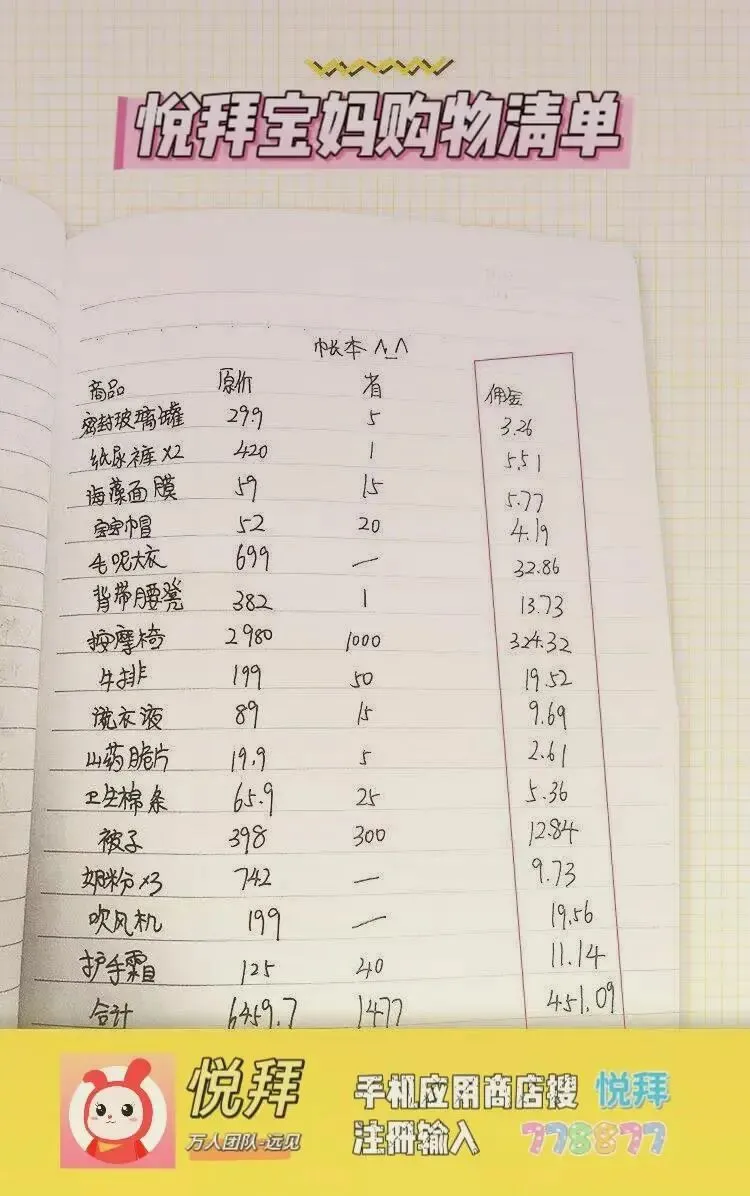 悦拜宝妈购物清单
帐本 ^_^
商品 原价 省 佣金
密封玻璃罐 29.9 5 3.26
纸尿裤×2 420 1 5.51
海藻面膜 59 15 5.77
宝宝帽 52 20 4.19
毛呢大衣 699 — 32.86
背带腰凳 382 1 13.73
按摩椅 2980 1000 324.32
牛排 199 50 19.52
洗衣液 89 15 9.69
山药脆片 19.9 5 2.61
卫生棉条 65.9 25 5.36
被子 398 300 12.84
奶粉×3 742 — 9.73
吹风机 199 — 19.56
护手霜 125 40 11.14
合计 6459.7 1477 451.09
悦拜
万人团队-远见
手机应用商店搜 悦拜
注册输入 778877